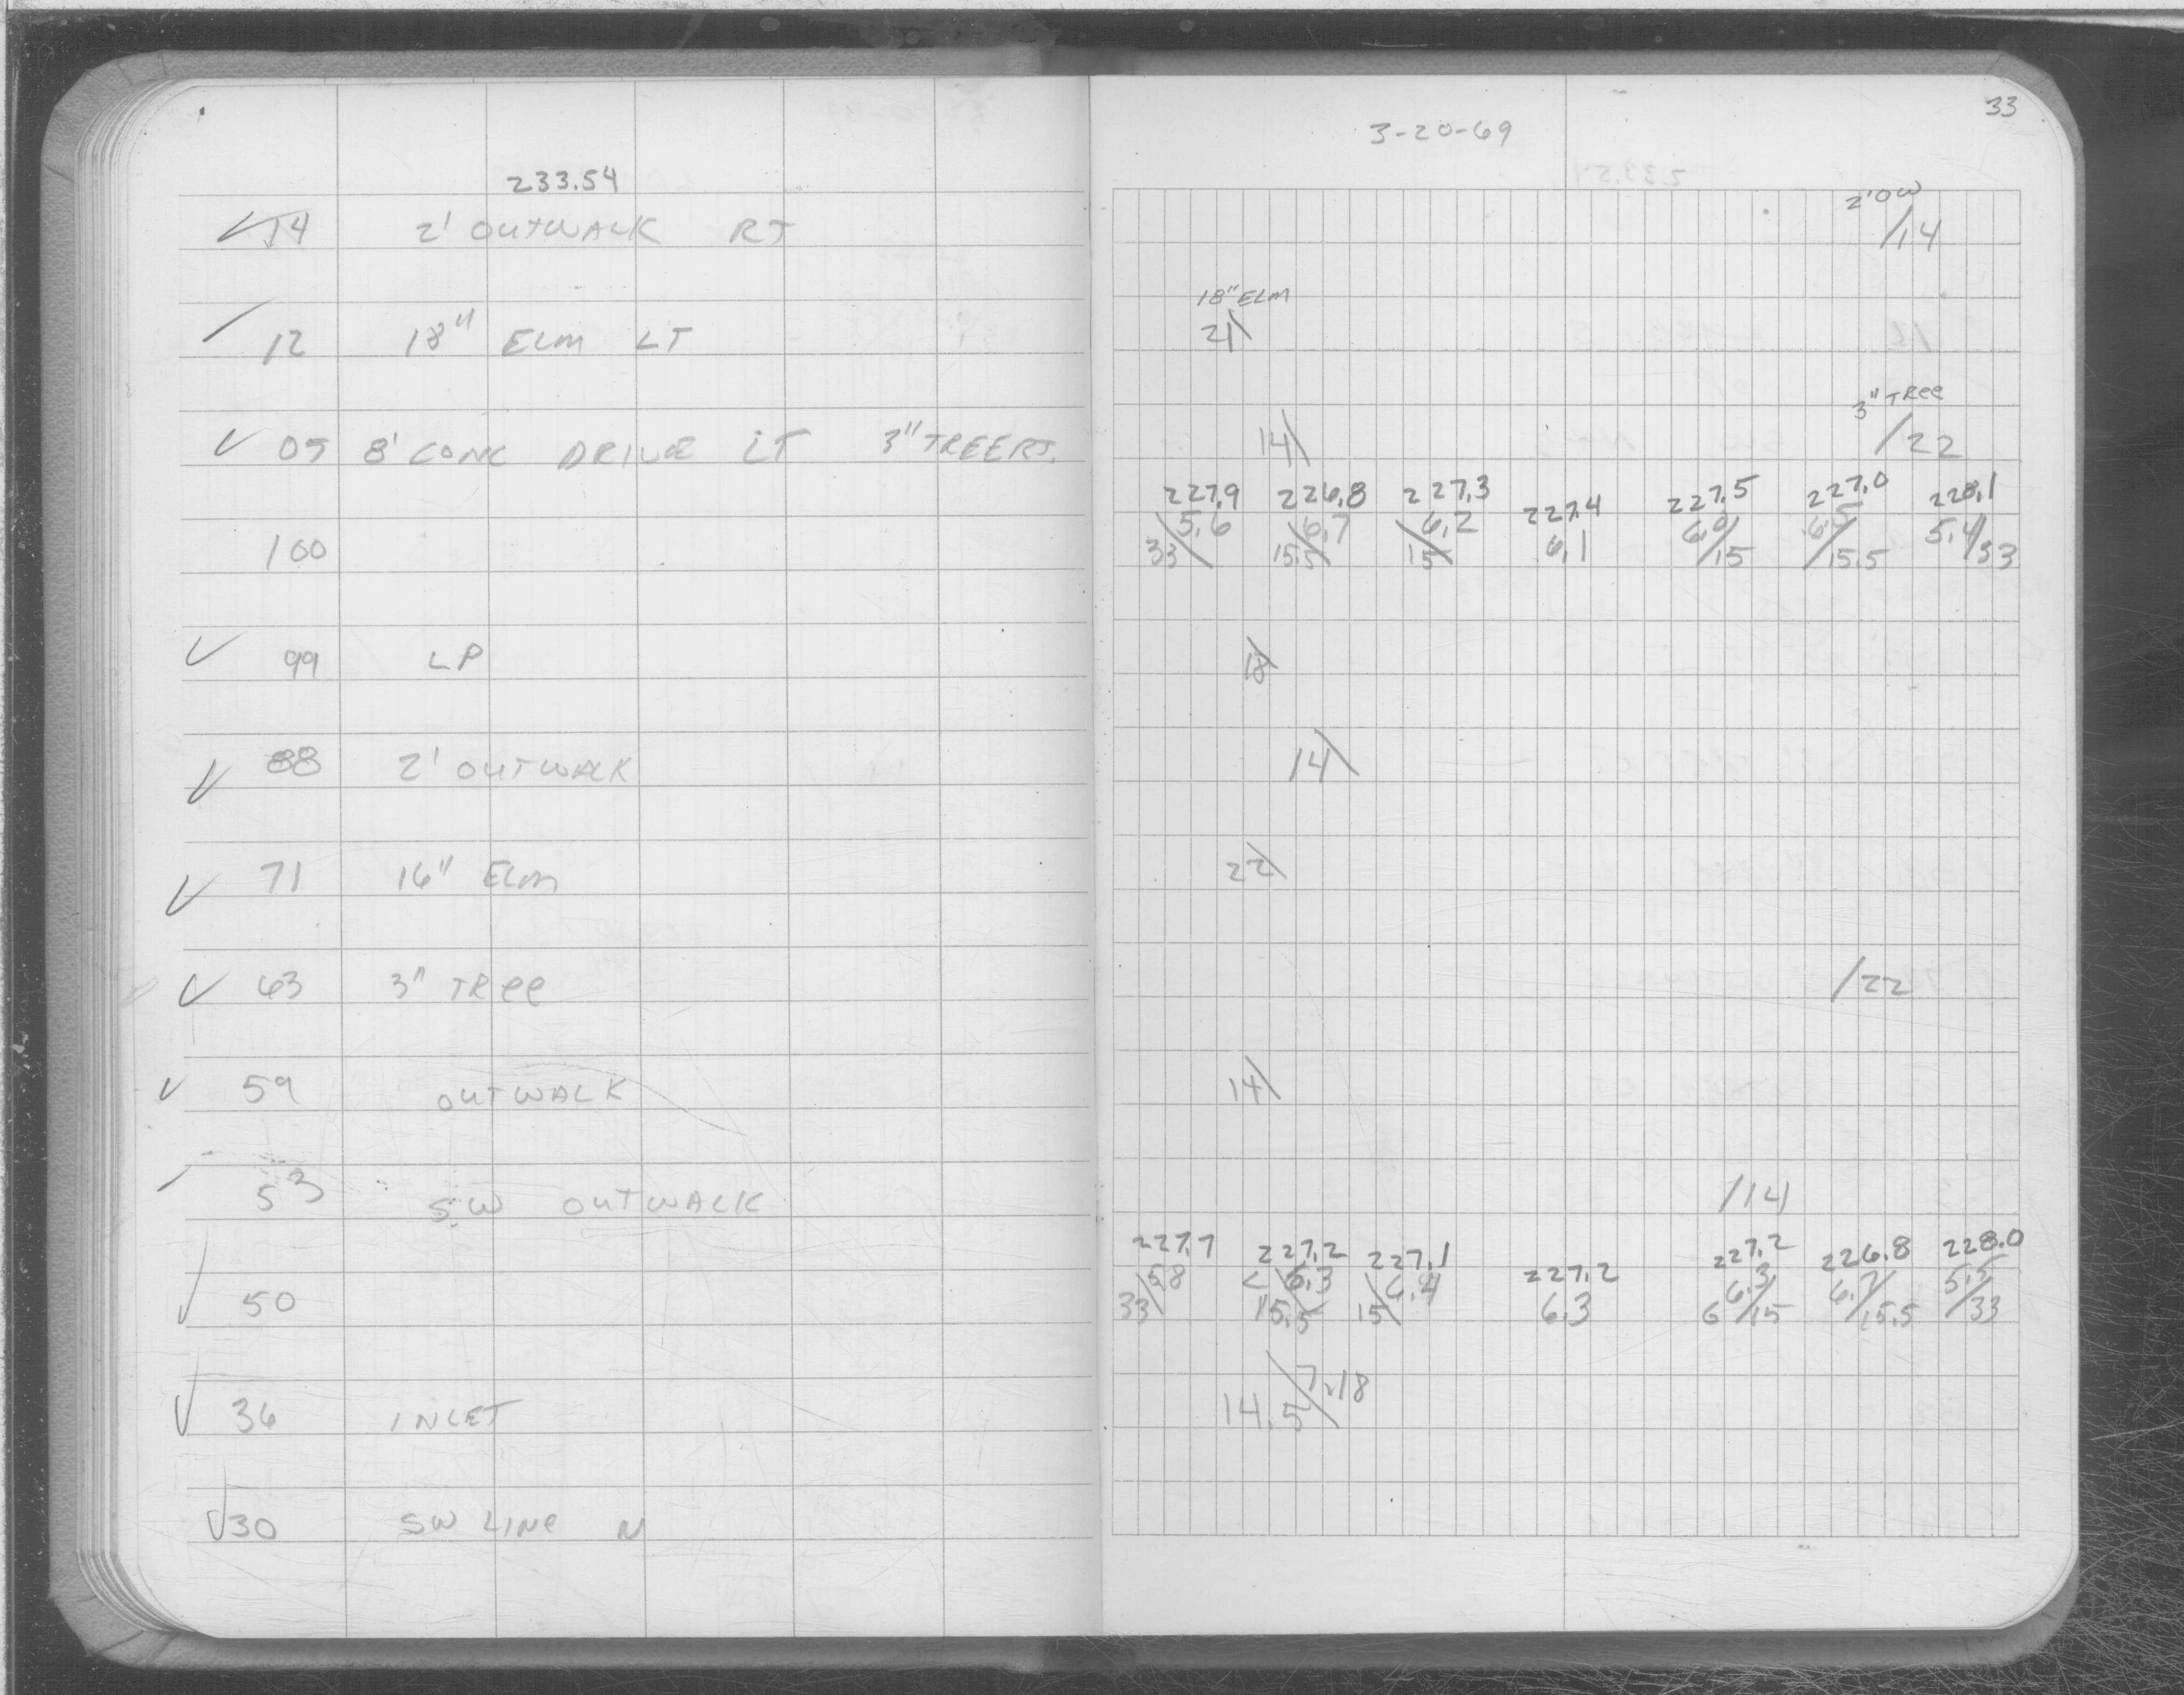 233.54
14 2' OUTWALK RT
12 18" ELM LT
05 8' CONC DRIVE LT 3" TREE RT.
100
99 LP
88 2' OUTWALK
71 16" ELM
63 3" TREE
59 OUTWALK
53 SW OUTWALK
50
36 INLET
30 SW LINE N
33
3-20-69
2' OW
/14
18" ELM
21\
3" TREE
14\ /22
227.9 226.8 227.3 227.4 227.5 227.0 228.1
5.6 6.7 6.2 6.1 6.0 6.5 5.4
33 15.5 15 15 15.5 33
18\
14\
22\
/22
14\
/14
227.7 227.2 227.1 227.2 227.2 226.8 228.0
5.8 6.3 6.4 6.3 6.3 6.7 5.5
33 15.5 15 15 15.5 33
7.18
14.5